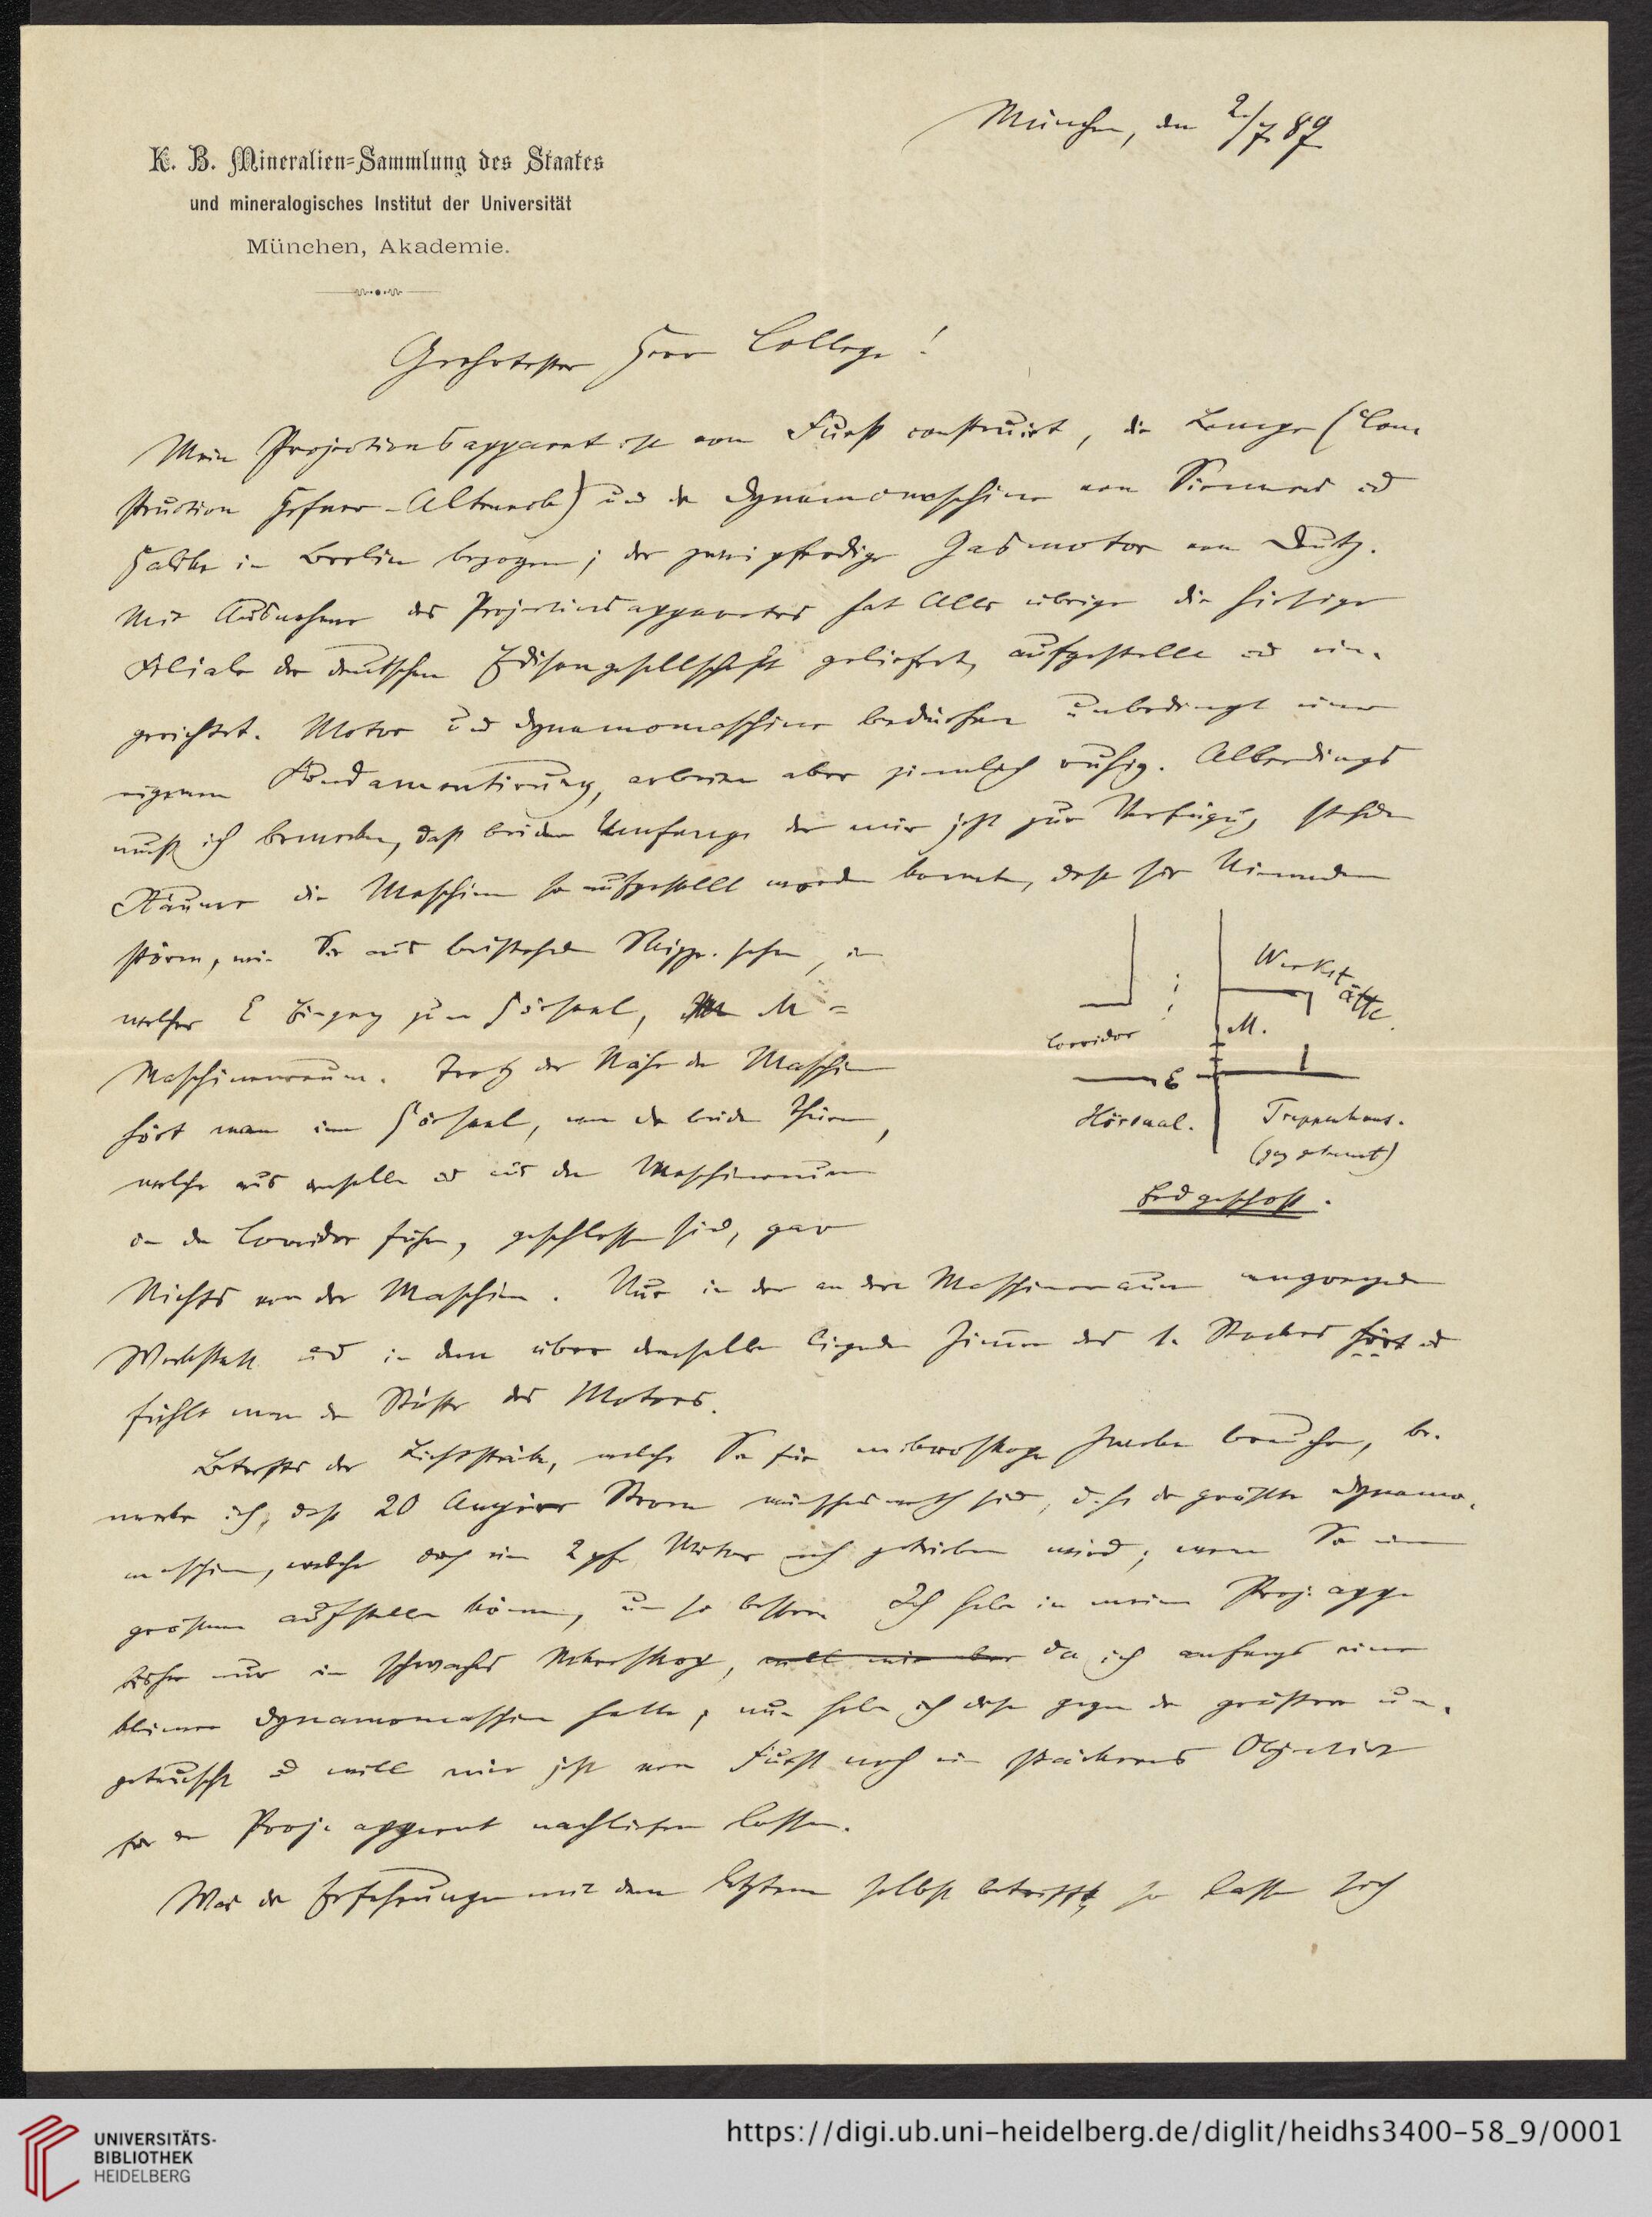 München, den 2/7 87
K. B. Mineralien-Sammlung des Staates
und mineralogisches Institut der Universität
München, Akademie.
Geehrtester Herr College!
Mein Projectionsapparat ist von Fuess construirt, die Lampe (Con
struction Hefner-Alteneck) und die Dynamomaschine von Siemens und
Halske in Berlin bezogen; der zweipferdige Gasmotor von Deutz.
Mit Ausnahme des Projectionsapparates hat Alles übrige die hiesige
Filiale der deutschen Edisongesellschaft geliefert, aufgestellt und ein-
gerichtet. Motor und Dynamomaschine bedürfen unbedingt einer
eigenen Fundamentirung, arbeiten aber ziemlich ruhig. Allerdings
muß ich bemerken, daß bei dem Umfange der mir jetzt zur Verfügung stehenden
Räume die Maschine so aufgestellt werden konnte, dass sie Niemanden
stören, wie Sie aus beistehender Skizze sehen, in
welcher E Eingang zum Hörsaal, M =
Maschinenraum. Trotz der Nähe der Maschine
hört man im Hörsaal, wenn die beiden Thüren,
welche aus demselben und aus dem Maschinenraum
in den Corridor führen, geschlossen sind, gar
Nichts von der Maschine. Nur in der an den Maschinenraum angrenzenden
Werkstatt und in dem über demselben liegenden Zimmer des 1. Stockes hört und
fühlt man die Stöße des Motors.
Werkstätte.
Corridor
M.
E
Hörsaal.
Treppenhaus.
Erdgeschoß.
Betreffs der Lichtstärke, welche Sie für mikroskop. Zwecke brauchen, be-
merke ich, daß 20 Ampère Strom wünschenswerth sind, d. h. die größte Dynamo-
maschine, welche durch ein 2 pf. Motor noch getrieben wird; wenn Sie einen
größeren aufstellen können, um so besser. Ich habe in meinem Proj. app.
bisher nur ein schwaches Mikroskop, da ich anfangs eine
kleinere Dynamomaschine hatte; nun habe ich diese gegen die größere um-
getauscht und will mir jetzt von Fuess noch ein stärkeres Objectiv
für den Proj. apparat nachliefern lassen.
Was die Erfahrungen mit dem letzteren selbst betrifft, so lassen sich
UNIVERSITÄTS-
BIBLIOTHEK
HEIDELBERG
https://digi.ub.uni-heidelberg.de/diglit/heidhs3400-58_9/0001